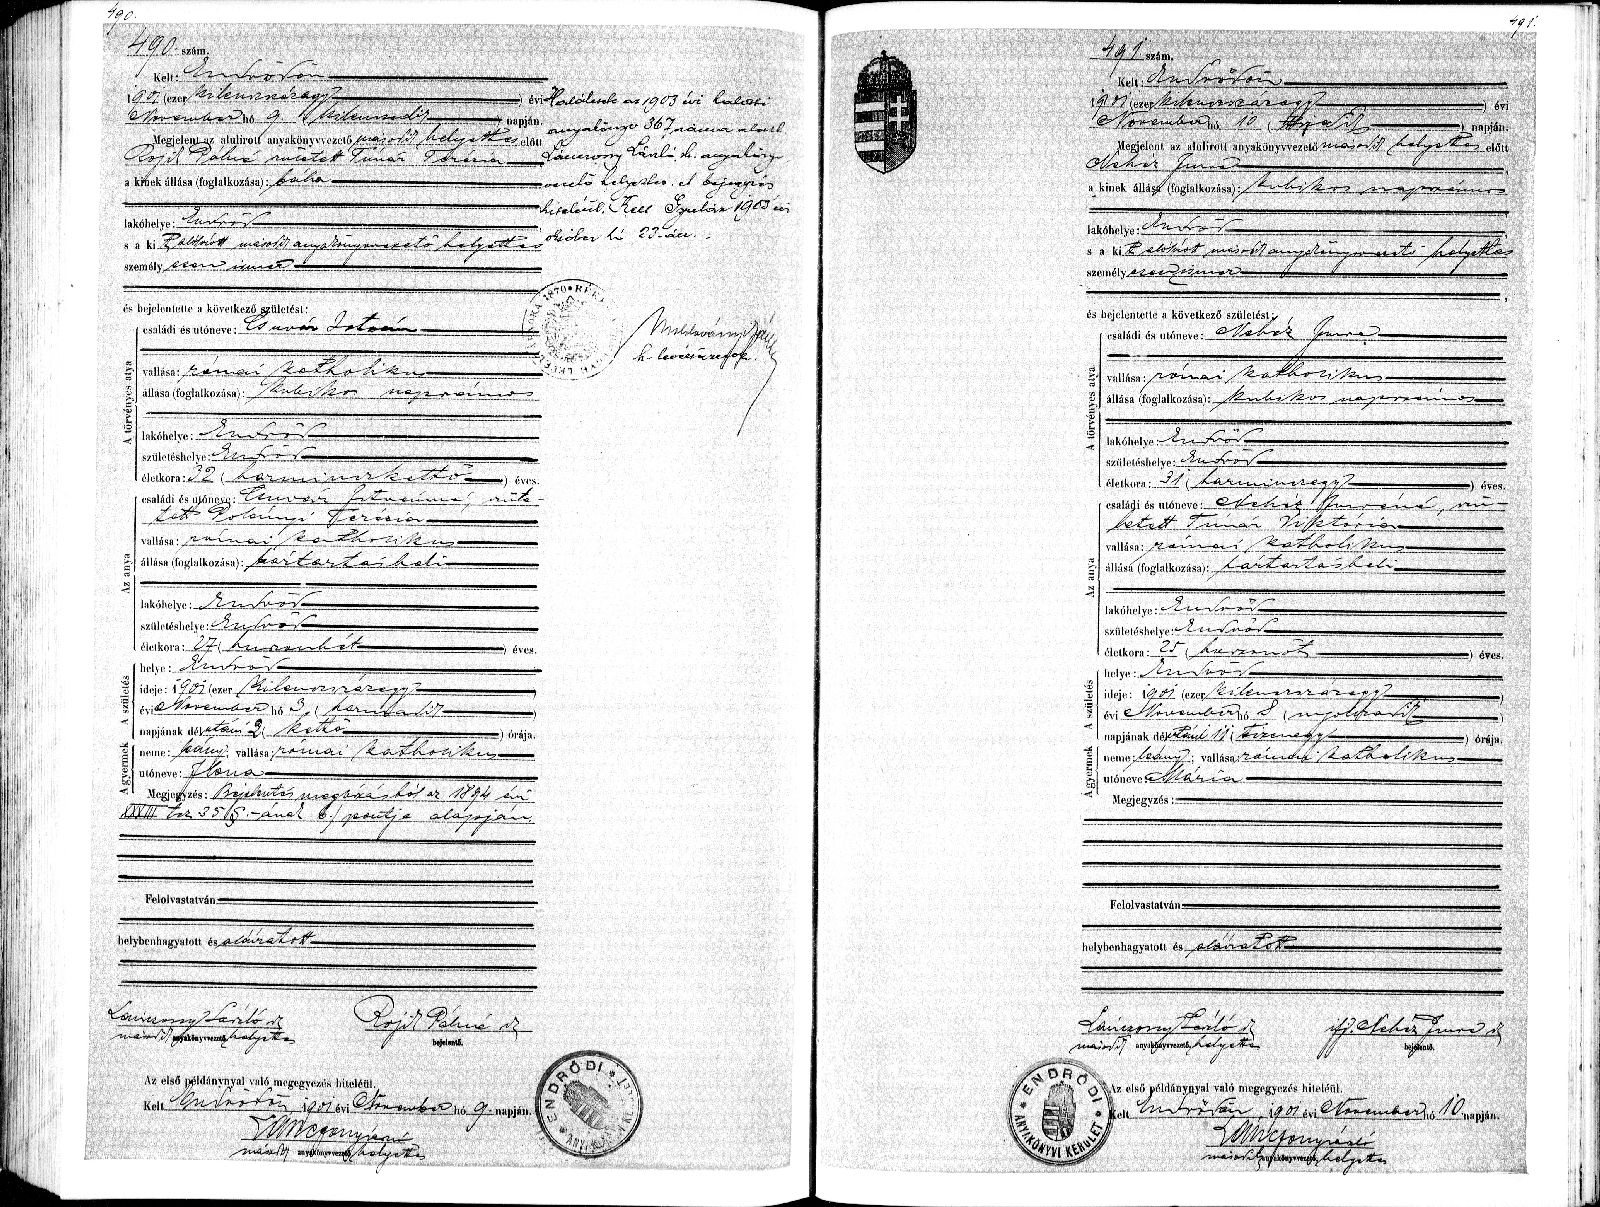 490.
490. szám.
Kelt: Endrődön
1901 (ezer kilenczszázegy) évi
November hó 9. (kilenczedik) napján.
Megjelent az alulirott anyakönyvvezető második helyettes előtt
Rojik Pálné született Tímár Terézia
a kinek állása (foglalkozása): bába
lakóhelye: Endrőd
s a kit alólírott második anyakönyvvezető helyettes
személyesen ismer
és bejelentette a következő születést:
A törvényes atya
családi és utóneve: Csuvár István
vallása: római katholikus
állása (foglalkozása): kubikos napszámos
lakóhelye: Endrőd
születéshelye: Endrőd
életkora: 32 (harminczkettő) éves.
Az anya
családi és utóneve: Csuvár Istvánné, szüle-
tett Polányi Terézia
vallása: római katholikus
állása (foglalkozása): háztartásbeli
lakóhelye: Endrőd
születéshelye: Endrőd
életkora: 27 (huszonhét) éves.
A születés
helye: Endrőd
ideje: 1901 (ezer kilenczszázegy)
évi November hó 3. (harmadik)
napjának délután 2 (kettő) órája.
A gyermek
neme: leány; vallása: római katholikus
utóneve: Ilona
Megjegyzés: Bejelentés megbízásból az 1894 évi
XXXIII tcz. 35 §-ának b) pontja alapján.
Felolvastatván
helybenhagyatott és aláiratott
Lánczsony László sk
második anyakönyvvezető helyettes
Rojik Pálné sk
bejelentő.
Az első példánynyal való megegyezés hiteléül.
Kelt Endrődön, 1901 évi November hó 9. napján.
második anyakönyvvezető helyettes
ENDRŐDI
Halálesete az 1903 évi halotti
anyakönyv 367 száma alatt
László h. anyakönyv
vezető helyettes. E bejegyzés
hiteléül. Kelt Gyulán 1903 évi
október hó 23-án.
1870
h. levéltárnok
491.
491 szám.
Kelt: Endrődön
1901 (ezer kilenczszázegy) évi
November hó 10 (tizedik) napján.
Megjelent az alulirott anyakönyvvezető második helyettes előtt
Nehéz Imre
a kinek állása (foglalkozása): kubikos napszámos
lakóhelye: Endrőd
s a kit alólírott második anyakönyvvezető helyettes
személyesen ismer
és bejelentette a következő születést:
A törvényes atya
családi és utóneve: Nehéz Imre
vallása: római katholikus
állása (foglalkozása): kubikos napszámos
lakóhelye: Endrőd
születéshelye: Endrőd
életkora: 31 (harminczegy) éves.
Az anya
családi és utóneve: Nehéz Imréné, szü-
letett Tímár Viktória
vallása: római katholikus
állása (foglalkozása): háztartásbeli
lakóhelye: Endrőd
születéshelye: Endrőd
életkora: 25 (huszonöt) éves.
A születés
helye: Endrőd
ideje: 1901 (ezer kilenczszázegy)
évi November hó 8 (nyolczadik)
napjának délután 11 (tizenegy) órája.
A gyermek
neme: leány; vallása: római katholikus
utóneve: Mária
Megjegyzés:
Felolvastatván
helybenhagyatott és aláiratott
Lánczsony László sk
második anyakönyvvezető helyettes
ifj. Nehéz Imre sk
bejelentő.
Az első példánynyal való megegyezés hiteléül.
Kelt Endrődön, 1901 évi November hó 10 napján.
második anyakönyvvezető helyettes
ENDRŐDI
ANYAKÖNYVI KERÜLET